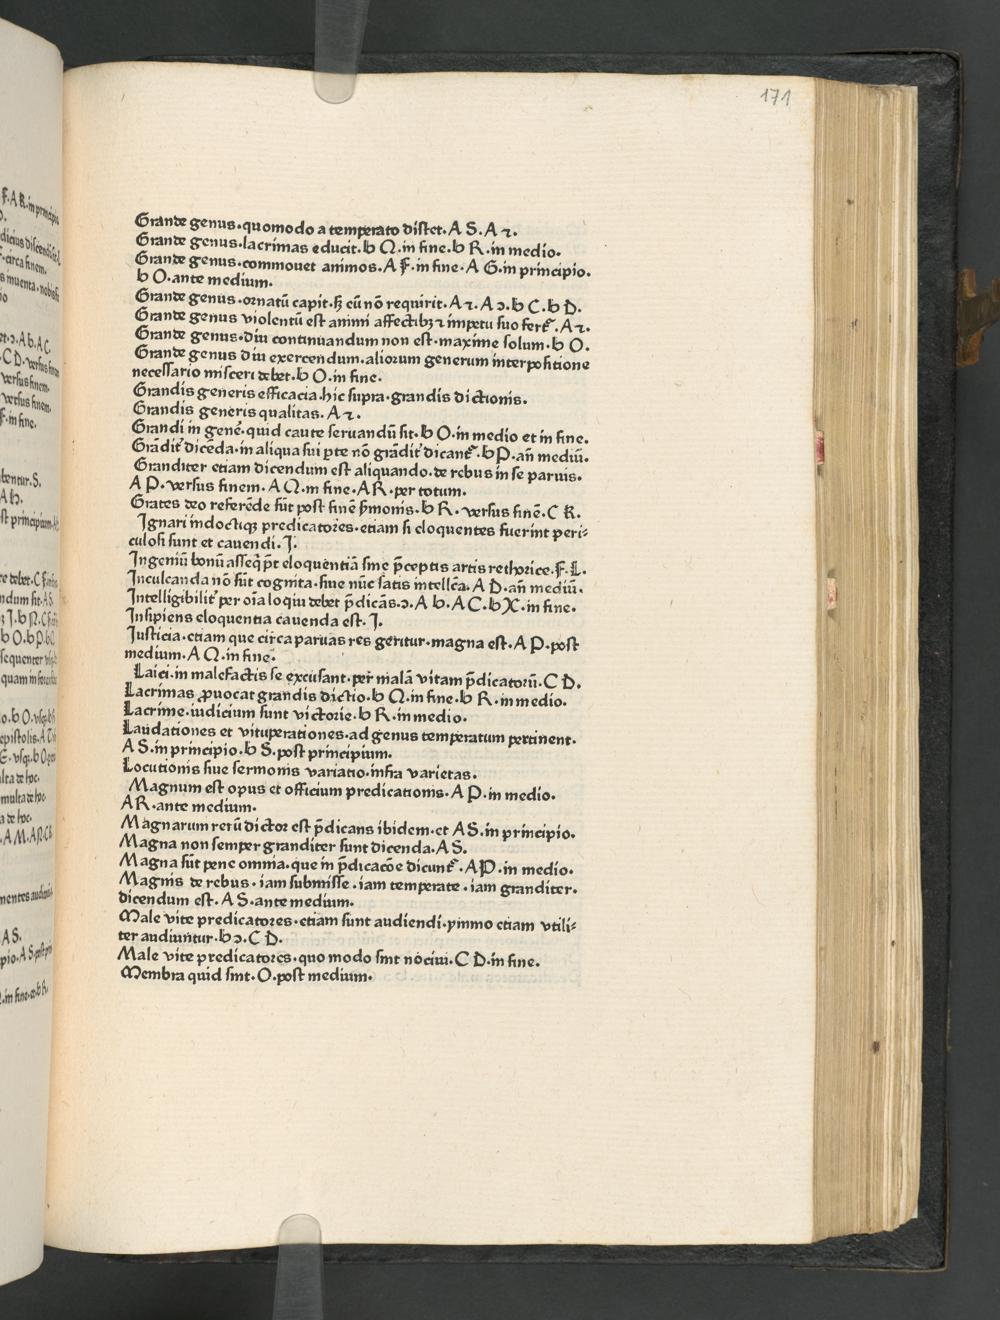 171
Grande genus·quomodo a temperato distet. A S. A ⁊.
Grande genus·lacrimas educit. b Q. in fine. b R. in medio.
Grande genus·commouet animos. A F. in fine. A G. in principio.
b O. ante medium.
Grande genus·ornatū capit. sꝫ eū nō requirit. A ⁊. A ↄ. b C. b D.
Grande genus violentū est animi affectibꝫ ⁊ impetu suo fert᷑. A ⁊.
Grande genus·diu continuandum non est·maxime solum. b O.
Grande genus diu exercendum·aliorum generum interpositione
necessario misceri debet. b O. in fine.
Grandis generis efficacia. hic supra·grandis dictionis.
Grandis generis qualitas. A ⁊.
Grandi in gene᷑·quid caute seruandū sit. b O. in medio et in fine.
Grādit᷑ diceda·in aliqua sui ꝑte nō grādit᷑ dicant᷑. b P. an̄ mediū.
Granditer etiam dicendum est aliquando·de rebus in se paruis.
A P. versus finem. A Q. in fine. A R. per totum.
Grates deo referēde sūt post finē ꝑmonis. b R. versus finē. C R.
Ignari indoctiqꝫ predicatores·etiam si eloquentes fuerint peri⸗
culosi sunt et cauendi. I.
Ingeniū bonū asseq̄ pt̄ eloquentiā sine p̄ceptis artis rethorice. F. L.
Inculcanda nō sūt cognita·siue nūc satis intellc̄a. A D. an̄ mediū.
Intelligibilit᷑ per oīa loqui debet p̄dicās. ↄ. A b. A C. b X. in fine.
Insipiens eloquentia cauenda est. I.
Iusticia·etiam que circa paruas res geritur·magna est. A P. post
medium. A Q. in fine.
Laici·in malefactis se excusant·per malā vitam p̄dicatorū. C D.
Lacrimas ꝓuocat grandis dictio. b Q. in fine. b R. in medio.
Lacrime·iudicium sunt victorie. b R. in medio.
Laudationes et vituperationes·ad genus temperatum pertinent.
A S. in principio. b S. post principium.
Locutionis siue sermonis variatio·infra varietas.
Magnum est opus et officium predicationis. A P. in medio.
A R. ante medium.
Magnarum rerū dictor est p̄dicans ibidem·et A S. in principio.
Magna non semper granditer sunt dicenda. A S.
Magna sūt pene omnia·que in p̄dicacōe dicunt᷑. A P. in medio.
Magnis de rebus·iam submisse·iam temperate·iam granditer.
dicendum est. A S. ante medium.
Male vite predicatores·etiam sunt audiendi·ymmo etiam vtili⸗
ter audiuntur. b ↄ. C D.
Male vite predicatores·quo modo sint nociui. C D. in fine.
Membra quid sint. O. post medium.